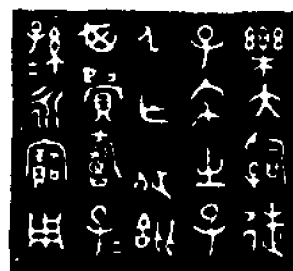 樂大司徒
子之子
引乍旅
其眉壽子=
孫=永寶用